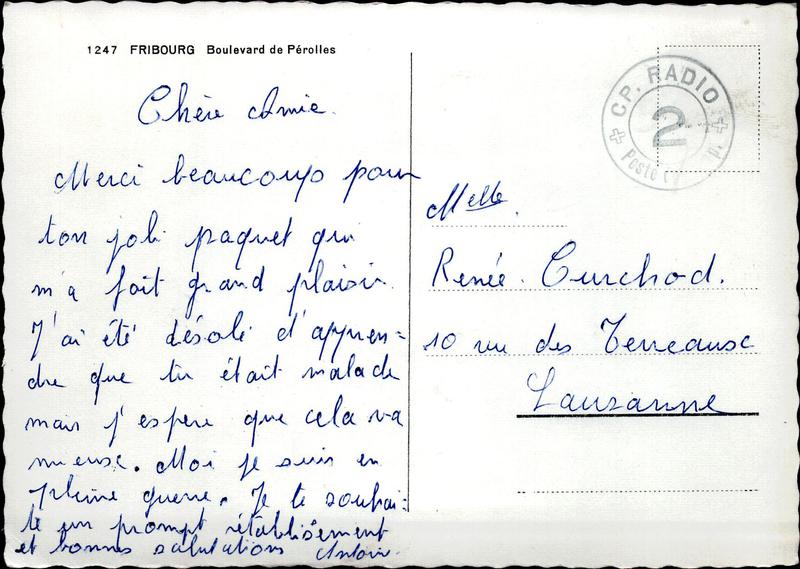 1247 FRIBOURG Boulevard de Pérolles
Chère Amie
Merci beaucoup pour
ton joli paquet qui
m'a fait grand plaisir.
J'ai été désolé d'appren=
dre que tu était malade
mais j'espère que cela va
mieux. Moi je suis en
pleine guerre. Je te souhai-
te un prompt rétablissement
et bonnes salutations Antoin.
CP. RADIO
2
Poste p.
Melle.
Renée. Curchod.
10 rue des Terreaux
Lausanne